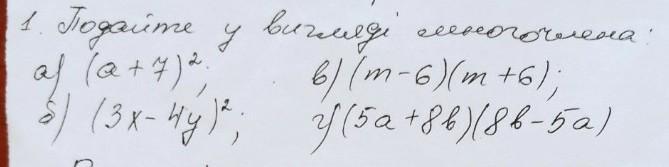 1. Подайте у вигляді многочлена:
а) (a+7)²;  в) (m-6)(m+6);
б) (3x-4y)²;  г) (5a+8b)(8b-5a)